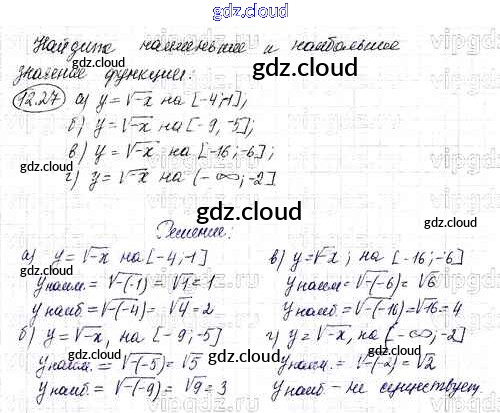 gdz.cloud
Найдите наименьшее и наибольшее
значение функции:
gdz.cloud
12.27 а) y = √-x на [-4;-1];
б) y = √-x на [-9,-5];
в) y = √-x на [-16;-6];
gdz.cloud
г) y = √-x на (-∞;-2]
gdz.cloud
Решение:
а) y = √-x на [-4;-1]
yнаим = √-(-1) = √1 = 1
yнаиб = √-(-4) = √4 = 2
б) y = √-x, на [-9;-5]
yнаим. = √-(-5) = √5
yнаиб = √-(-9) = √9 = 3
в) y = √-x; на [-16;-6]
yнаим = √-(-6) = √6
yнаиб = √-(-16) = √16 = 4
г) y = √-x, на (-∞;-2]
yнаим. = √-(-2) = √2
yнаиб - не существует.
gdz.cloud